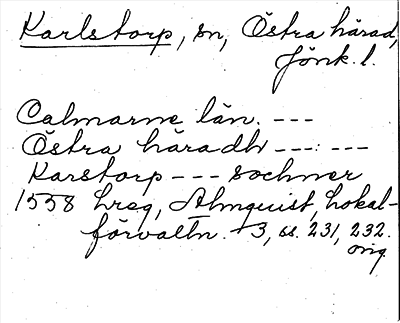 Karlstorp, sn, Östra härad,
Jönk. l.
Calmarne län. ---
Östra häradh --- ---
Karstorp --- sochner
1558 hreg, Almquist, Lokal-
förvaltn. 3, ss. 231, 232.
orig.